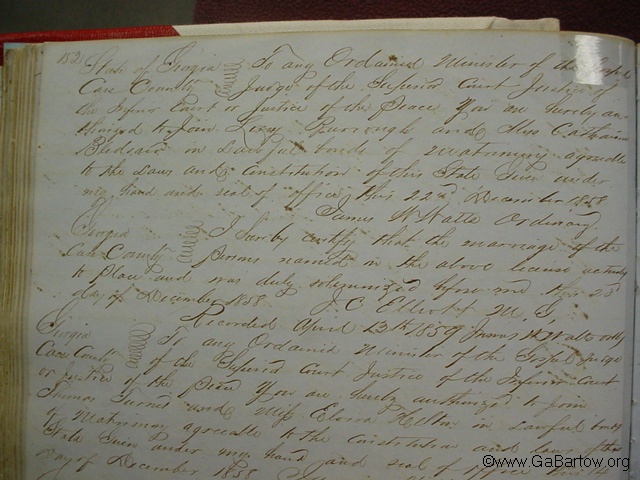 152
State of Georgia To any Ordained Minister of the Gospel
Cass County Judge of the Superior Court Justice of
the Inferior Court or Justice of the Peace You are hereby au
thorized to join Leroy Burrough and Miss Catharine
in Lawful bonds of Matrimony agreeable
to the Laws and Constitution of this State Given under
my hand and seal of office this 22nd December 1858
James W Watts Ordinary
Georgia I hereby certify that the marriage of the
Cass County persons named in the above license actually
tk place and was duly solemnized before me this 23d
day of December 1858 J. C. Elliott M. G
Recorded April 13th 1859 James W Watts ordy
Georgia To any Ordained Minister of the Gospel Judge
Cass County of the Superior Court Justice of the Inferior Court
or Justice of the Peace You are hereby authorized to join
Thomas and Miss in Lawful bonds
of Matrimony agreeable to the Constitution and laws of this
State Given under my hand and seal of office
day of December 1858
©www.GaBartow.org